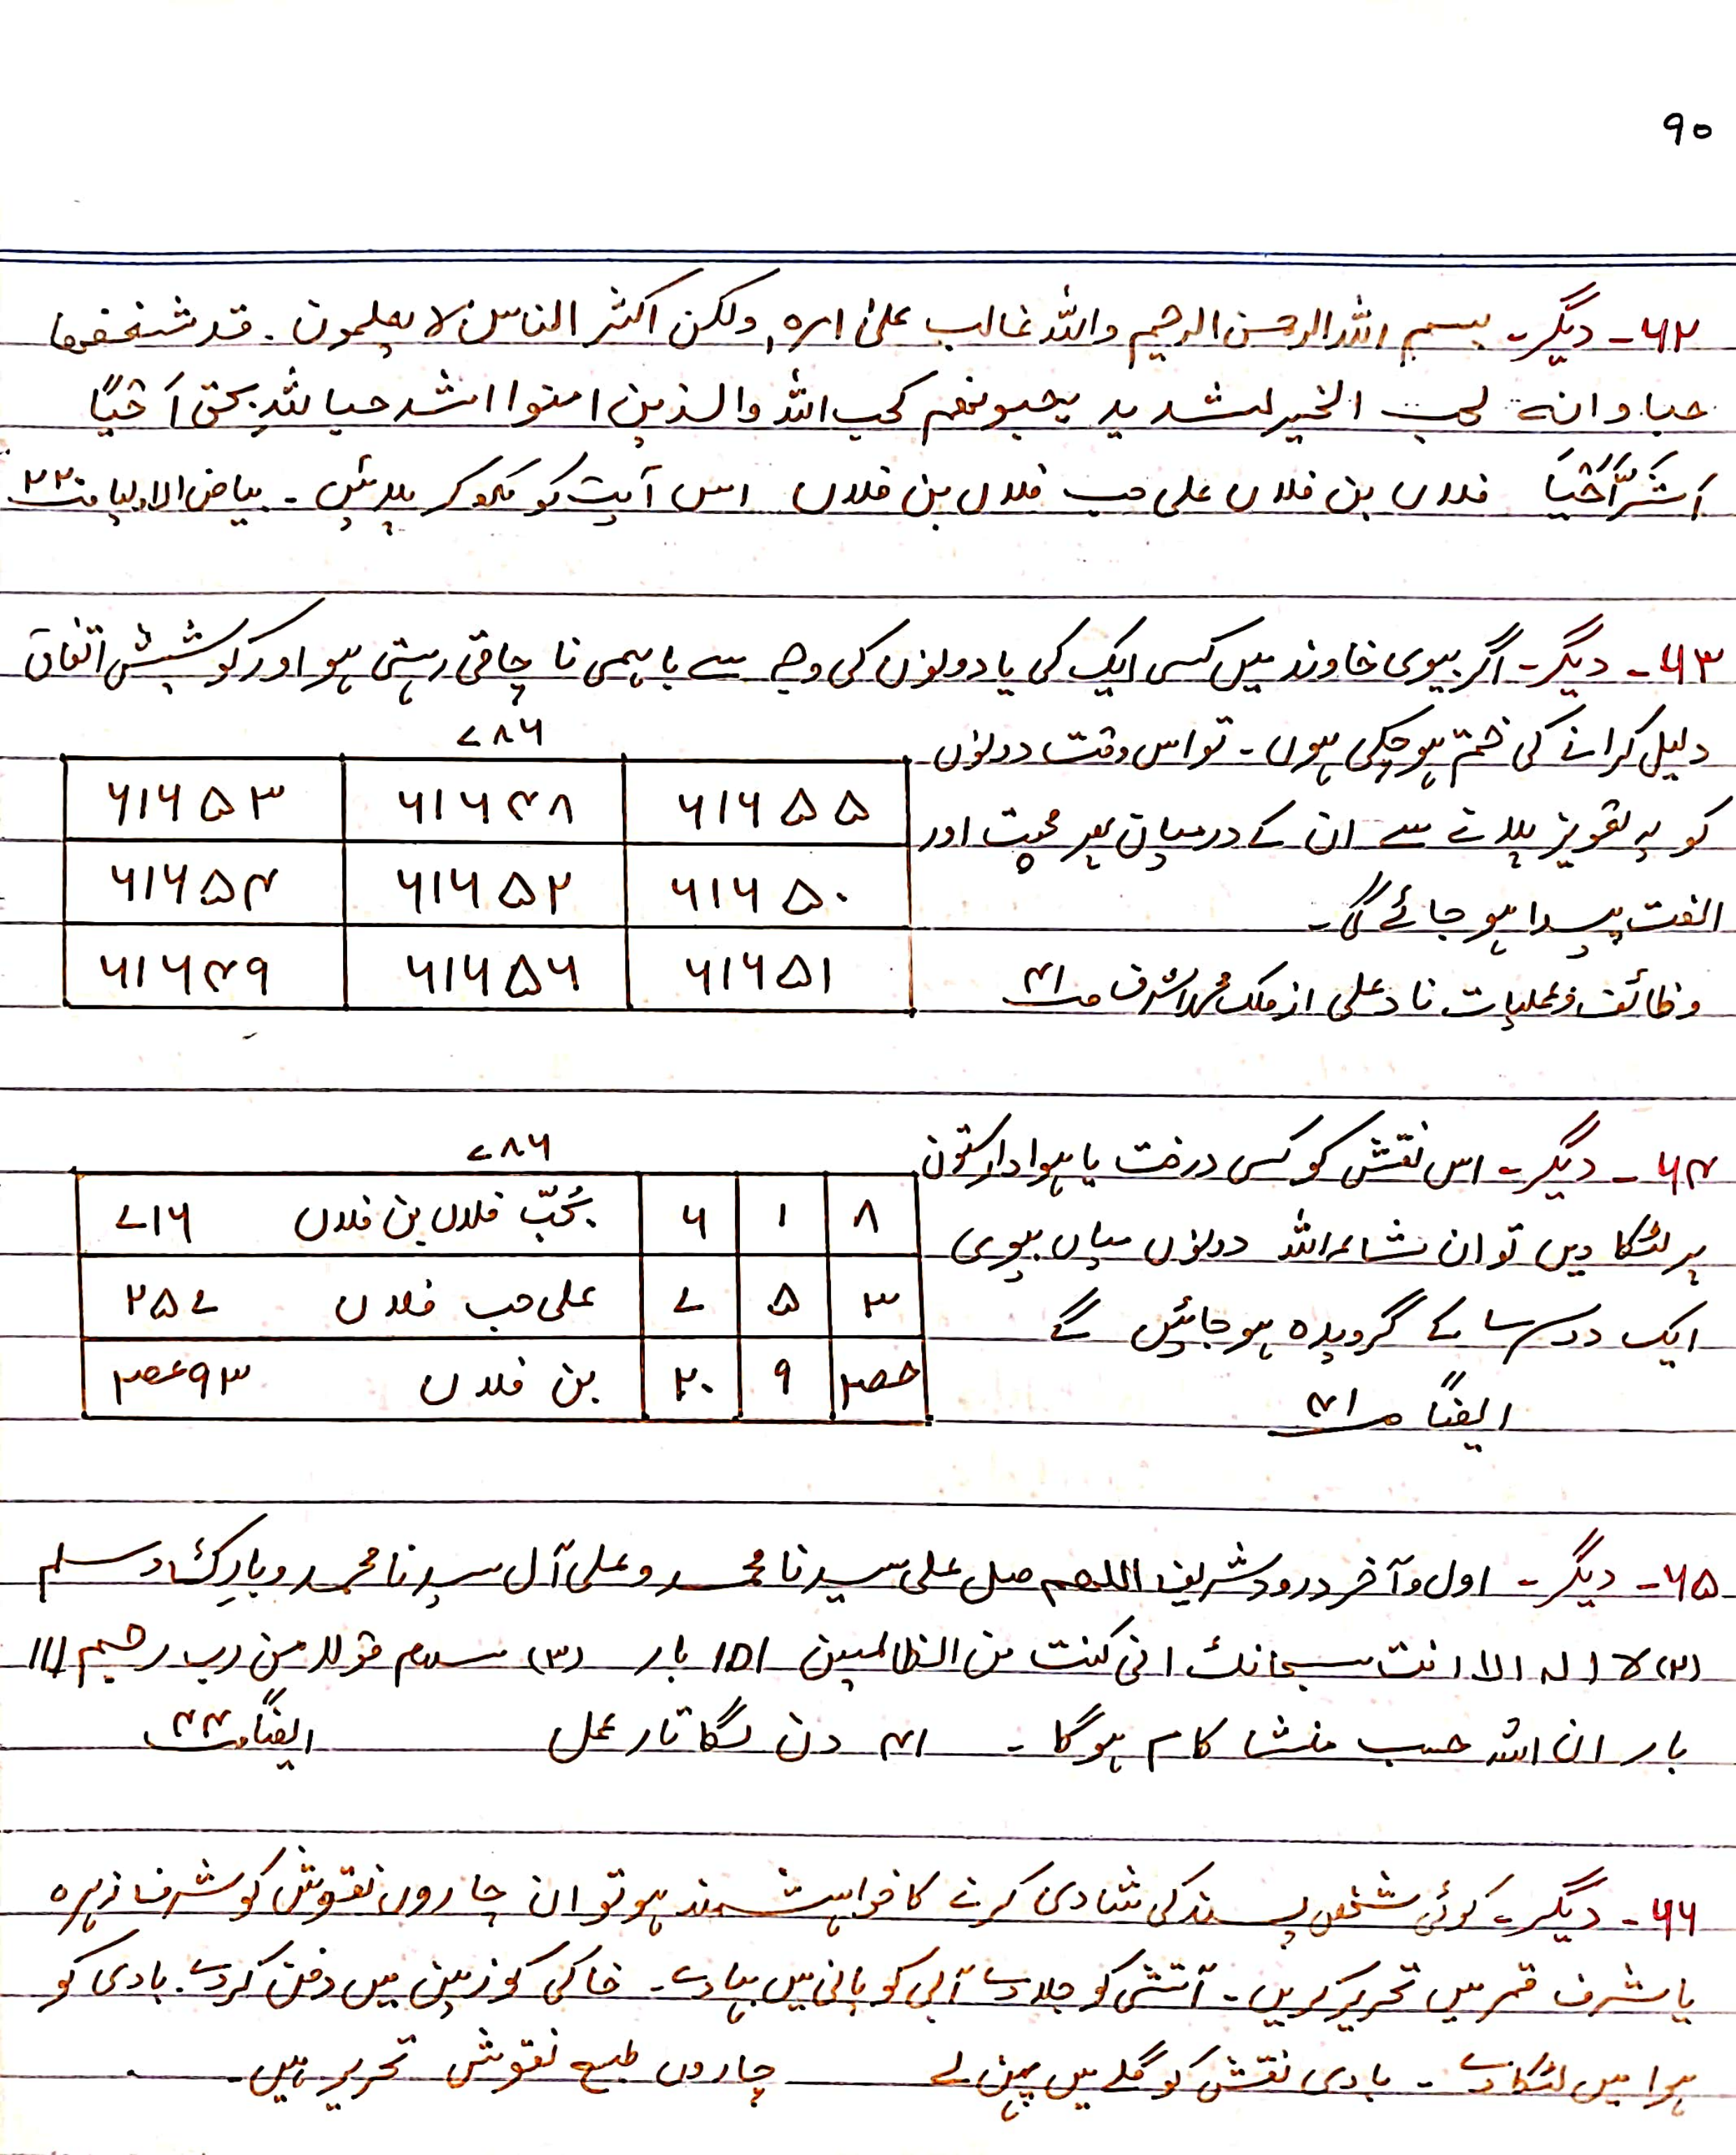 ۹۰
۶۲۔ دیگر۔ بسم اللہ الرحمن الرحیم واللہ غالب علیٰ امرہ ولکن اکثر الناس لا یعلمون۔ قد شغفھا
حبا و انہ لحب الخیر لشدید یحبونھم کحب اللہ والذین امنوا اشد حبا للہِ بحق اَخیًا
اَشَرًّا خَیًا فلاں بن فلاں علی حب فلاں بن فلاں اس آیت کو لکھ کر پلائیں۔ بیاض الاولیا صـ ۲۲
۶۳۔ دیگر۔ اگر بیوی خاوند میں کسی ایک کی یا دونوں کی وجہ سے باہمی نا چاقی رہتی ہو اور کوشیش اتفاق
دلیل کرانے کی ختم ہو چکی ہوں۔ تو اس وقت دونوں
کو یہ تعویز پلانے سے ان کے درمیان پھر محبت اور
الفت پیدا ہو جائے گی۔
وظائف و عملیات ناد علی از ملک محمد اشرف صـ ۴۱
۷۸۶
۶۱۶۵۵ ۶۱۶۴۸ ۶۱۶۵۳
۶۱۶۵۰ ۶۱۶۵۲ ۶۱۶۵۴
۶۱۶۵۱ ۶۱۶۵۶ ۶۱۶۴۹
۶۴۔ دیگر۔ اس نقش کو کسی درخت یا ہوادار ستون
پر لٹکا دیں تو ان شاءاللہ دونوں میاں بیوی
ایک دوسرے کے گرویدہ ہو جائیں گے
ایضاً صـ ۴۱
۷۸۶
۸ ۱ ۶ بحُبّ فلاں بن فلاں ۷۱۶
۳ ۵ ۷ علی حب فلاں ۲۵۷
۹ ۲۰ بن فلاں
۶۵۔ دیگر۔ اول و آخر درود شریف اللھم صل علی سیدنا محمد و علی آل سیدنا محمد وبارِک وسلم
(۲) لا الہ الا انت سبحانک انی کنت من الظالمین ۱۵۱ بار (۳) سلام قولا من رب رحیم ۱۱۱
بار ان اللہ حسب منشا کام ہوگا۔ ۴۱ دن لگاتار عمل ایضاً صـ ۴۴
۶۶۔ دیگر۔ کوئی شخص پسند کی شادی کرنے کا خواہشمند ہو تو ان چاروں نقوش کو شرف زہرہ
یا شرف قمر میں تحریر کریں۔ آتشی کو جلا دے آبی کو پانی میں بہا دے۔ خاکی کو زمین میں دفن کر دے۔ بادی کو
ہوا میں لٹکا دے۔ بادی نقش کو گلے میں پہن لے چاروں طبع نقوش تحریر ہیں۔